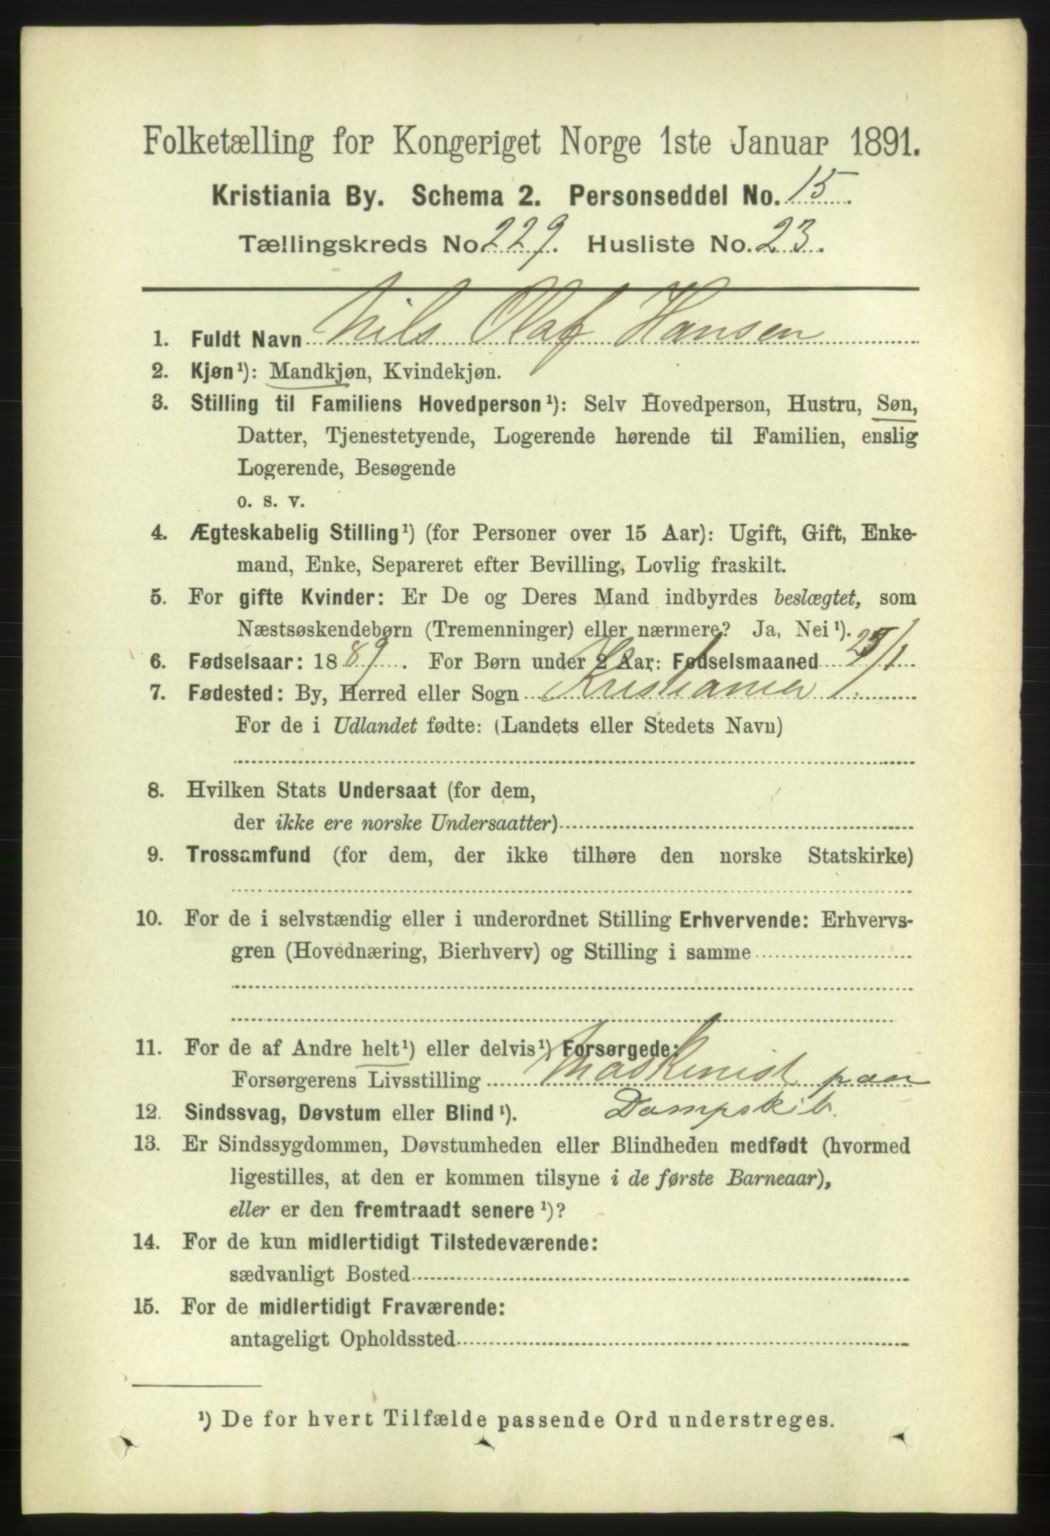 Folketælling for Kongeriget Norge 1ste Januar 1891.
Kristiania By. Schema 2. Personseddel No. 15.
Tællingskreds No. 229. Husliste No. 23.
1. Fuldt Navn Nils Olaf Hansen
2. Kjøn¹): Mandkjøn, Kvindekjøn.
3. Stilling til Familiens Hovedperson¹): Selv Hovedperson, Hustru, Søn,
Datter, Tjenestetyende, Logerende hørende til Familien, enslig
Logerende, Besøgende
o. s. v.
4. Ægteskabelig Stilling¹) (for Personer over 15 Aar): Ugift, Gift, Enke-
mand, Enke, Separeret efter Bevilling, Lovlig fraskilt.
5. For gifte Kvinder: Er De og Deres Mand indbyrdes beslægtet, som
Næstsøskendebørn (Tremenninger) eller nærmere? Ja, Nei¹).
6. Fødselsaar: 1889. For Børn under 2 Aar: Fødselsmaaned 25/1
7. Fødested: By, Herred eller Sogn Kristiania.
For de i Udlandet fødte: (Landets eller Stedets Navn)
8. Hvilken Stats Undersaat (for dem,
der ikke ere norske Undersaatter)
9. Trossamfund (for dem, der ikke tilhøre den norske Statskirke)
10. For de i selvstændig eller i underordnet Stilling Erhvervende: Erhvervs-
gren (Hovednæring, Bierhverv) og Stilling i samme
11. For de af Andre helt¹) eller delvis¹) Forsørgede:
Forsørgerens Livsstilling Maskinist paa
12. Sindssvag, Døvstum eller Blind¹). Dampskib.
13. Er Sindssygdommen, Døvstumheden eller Blindheden medfødt (hvormed
ligestilles, at den er kommen tilsyne i de første Barneaar),
eller er den fremtraadt senere¹)?
14. For de kun midlertidigt Tilstedeværende:
sædvanligt Bosted
15. For de midlertidigt Fraværende:
antageligt Opholdssted
¹) De for hvert Tilfælde passende Ord understreges.